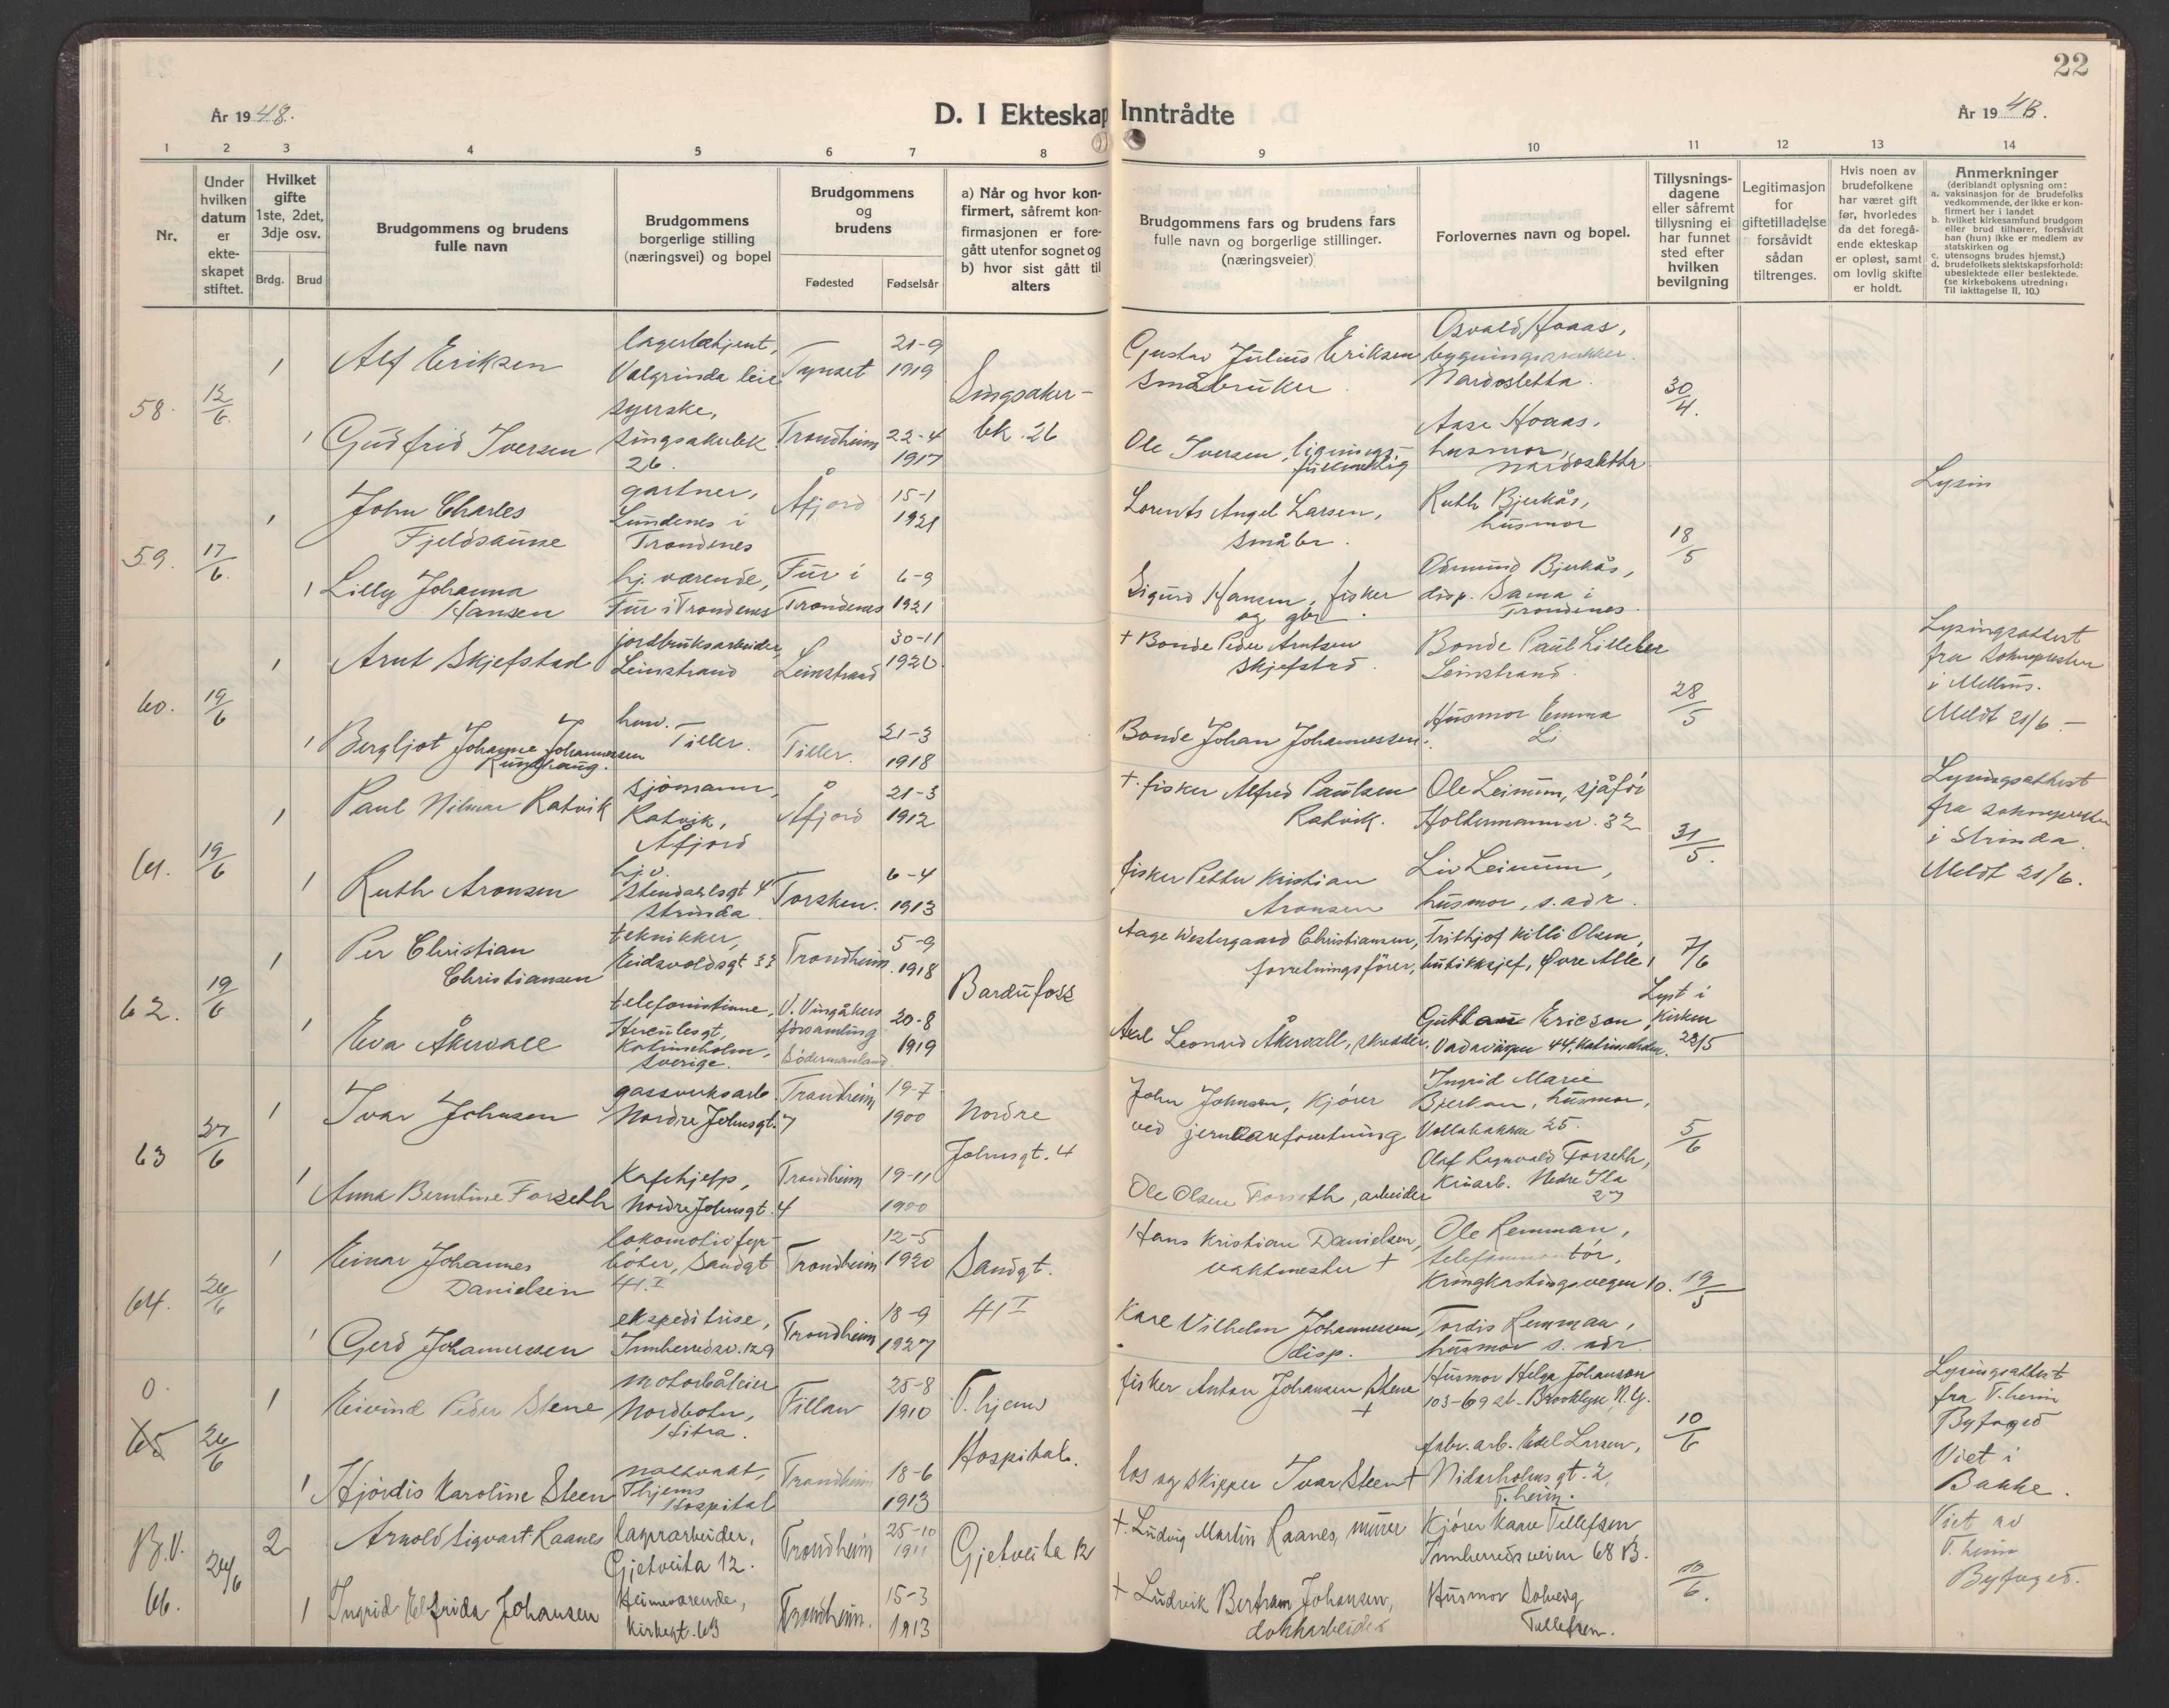 22
År 1948.
D. I Ekteskap Inntrådte
År 1948.
1 2 3 4 5 6 7 8 9 10 11 12 13 14
Nr.
Under hvilken datum er ekte-skapet stiftet.
Hvilket gifte 1ste, 2det, 3dje osv.
Brdg. Brud
Brudgommens og brudens fulle navn
Brudgommens borgerlige stilling (næringsvei) og bopel
Brudgommens og brudens
Fødested Fødselsår
a) Når og hvor kon-firmert, såfremt kon-firmasjonen er fore-gått utenfor sognet og b) hvor sist gått til alters
Brudgommens fars og brudens fars fulle navn og borgerlige stillinger. (næringsveier)
Forlovernes navn og bopel.
Tillysnings-dagene eller såfremt tillysning ei har funnet sted efter hvilken bevilgning
Legitimasjon for giftetilladelse forsåvidt sådan tiltrenges.
Hvis noen av brudefolkene har været gift før, hvorledes da det foregå-ende ekteskap er opløst, samt om lovlig skifte er holdt.
Anmerkninger
(deriblandt oplysning om:
a. vaksinasjon for de brudefolks vedkommende, der ikke er kon-firmert her i landet
b. hvilket kirkesamfund brudgom eller brud tilhører, forsåvidt han (hun) ikke er medlem av statskirken og
c. utensogns brudes hjemst.)
d. brudefolkets slektskapsforhold: ubeslektede eller beslektede.
(se kirkebokens utredning: Til iakttagelse II. 10.)
58. 12/6.
1 Alf Eriksen
lagerbetjent, Valgrinda leir
Tynset 21-9 1919
Singsaker-bk. 26
Gustav Julius Eriksen småbruker.
Osvald Hoaas, Nardosletta.
30/4.
1 Gudfrid Iversen
syerske, Singsakerbk 26.
Trondheim 22-4 1917
Ole Iversen, lignings-fullmektig
Aase Hoaas, husmor, Nardosletta
59. 17/6.
1 John Charles Fjeldsaune
gartner, Lundenes i Trondenes
Åfjord 15-1 1921
Lorents Angel Larsen, småbr.
Ruth Bjerkås, husmor
18/5
1 Lilly Johanna Hansen
hj. værende, Fur i Trondenes
Fur i Trondenes 6-9 1921
Sigurd Hansen, fisker og gbr.
Odmund Bjerkås, disp. Sama i Trondenes.
60. 19/6
1 Arnt Skjefstad
jordbruksarbeider, Leinstrand
Leinstrand 30-11 1920
+ Bonde Peder Arntsen Skjefstad.
Bonde Paul Lilleber Leinstrand.
28/5
Lysingsattest fra Soknepresten i Melhus. Meldt 21/6 -
1 Bergljot Johanne Johannessen Rundhaug.
husv. Tiller.
Tiller. 21-3 1918
Bonde Johan Johannessen.
Husmor Emma Li
61. 19/6
1 Paul Hilmar Ratvik
sjømann, Ratvik, Åfjord
Åfjord 21-3 1912
+ fisker Alfred Paulsen Ratvik.
Ole Leinum, sjåfør Holtermannsv. 32
31/5.
Lysingsattest fra sokneprester i Strinda. Meldt 21/6.
1 Ruth Aronsen
hj.v. Stendahlsgt 4 Strinda.
Torsken. 6-4 1913
fisker Petter Kristian Aronsen
Liv Leinum, husmor, s. adr.
62. 19/6
1 Per Christian Christiansen
teknikker, Eidsvoldsgt 33
Trondheim. 5-9 1918
Bardufoss
Aage Westergaard Christiansen, forretningsfører,
Frithjof Killi Olsen, butikksjef, Øvre Alle 1
7/6
1 Eva Åkervall
telefonistinne, Herculesgt, Katrineholm, Sverige.
V. Vingåkers församling Södermanland 20-8 1919
Axel Leonard Åkervall, skredder.
Ericson, Vadavägen 44, Katrineholm.
Lyst i Kirken 23/5
63 27/6
1 Ivar Johnsen
gassverksarb. Nordre Johnsgt. 7
Trondheim 19-7 1900
Nordre Johnsgt. 4
John Johnsen, kjører ved jernvareforretning
Ingrid Marie Bjerkan, husmor, Vollabakken 25.
5/6
1 Anna Berntine Forseth
Kafehjelp, Nordre Johnsgt. 4
Trondheim 19-11 1900
Ole Olsen Forseth, arbeider
Olaf Ragnvald Forseth, Kruarb. Nedre Ila 27
64. 26/6
1 Einar Johannes Danielsen
lokomotivfyr-bøter, Sandgt 41.I
Trondheim 12-5 1920
Sandgt. 41 I
Hans Kristian Danielsen, vaktmester +
Ole Remman, telefonmontør, Kringkastingsvegen 10.
19/5
1 Gerd Johannessen
ekspeditrise, Innherredsv. 129
Trondheim 18-9 1927
Kare Vilhelm Johannessen, disp.
Tordis Remman, husmor s. adr.
0. 65 26/6
1 Eivind Peder Stene
motorbåteier Nordbotn, Hitra.
Fillan 25-8 1910
T.hjems Hospital.
fisker Anton Johansen Stene +
Husmor Helga Johanson 103-69 st. Brooklyn N.Y.
10/6
Lysingsattest fra T.heim Byfoged Viet i Bakke.
1 Hjördis Karoline Steen
nattvakt, T.hjems Hospital
Trondheim 18-6 1913
los og skipper Ivar Steen +
fabr. arb. Edel Larsen, Nidarholms gt. 2, T.heim.
B.V. 66. 26/6
2 Arnold Sigvart Raanes
lagerarbeider, Gjetveita 12.
Trondheim 25-10 1911
Gjetveita 12
+ Ludvig Martin Raanes, murer
Kjører Kaare Tellefsen, Innherredsveien 68 B.
10/6.
Viet av T.heim Byfoged.
1 Ingrid Elfrida Johansen
Heimeværende, Kirkegt. 63
Trondheim. 15-3 1913
+ Ludvik Bertram Johansen, dokkarbeider
Husmor Solveig Tellefsen.